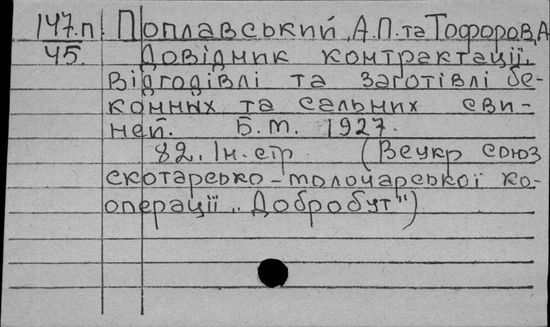 147.п Поплавський, А.П. та Тофоров, А
45. Довідник контрактації,
відгодівлі та заготівлі бе-
конных та сальних сви-
ней. Б.М. 1927.
82. Ін. стр. (Веукр союз
скотарсько-молочарської ко-
операції „Добробут")